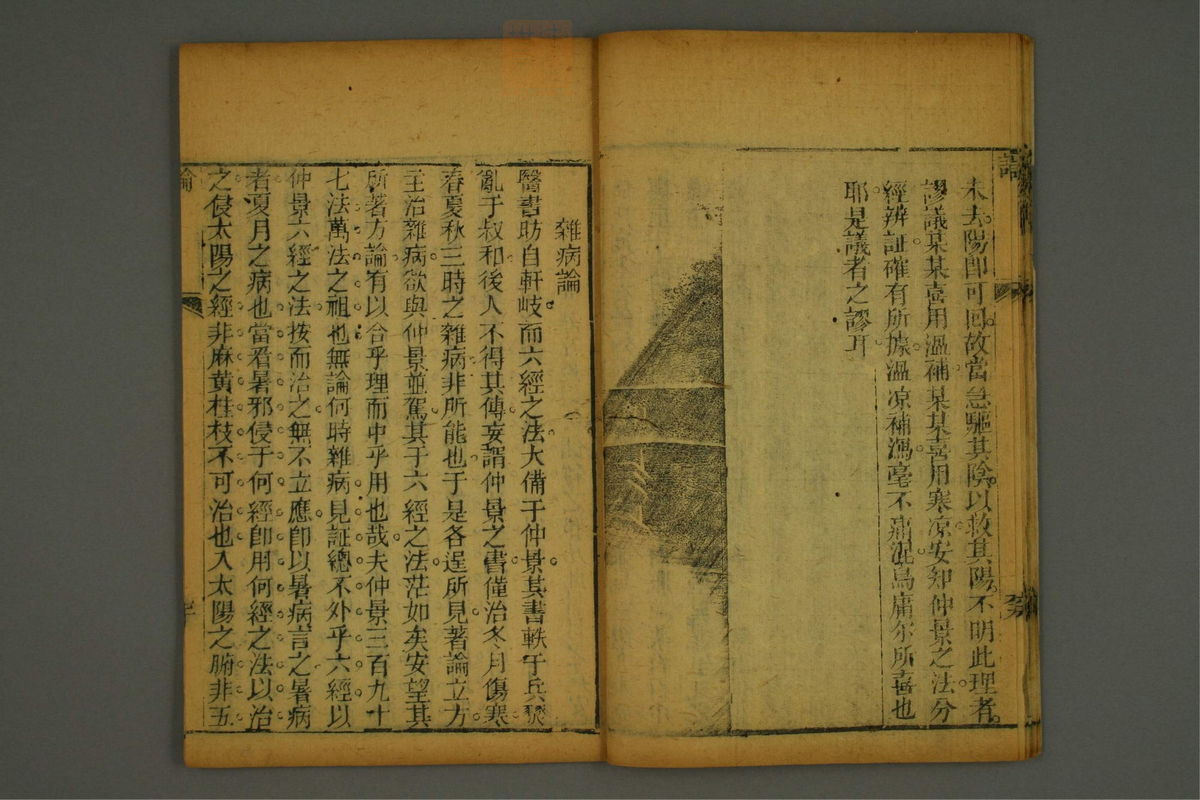 未去陽即可回故當急驅其陰以救其陽不明此理者
謬議某某喜用溫補某某喜用寒凉安知仲景之法分
經辨証確有所據溫凉補瀉毫不爽混烏庸尔所喜也
耶是議者之謬耳
雜病論
醫書昉自軒岐而六經之法大備于仲景其書軼于兵燹
亂于叔和後人不得其傳妄謂仲景之書僅治冬月傷寒
春夏秋三時之雜病非所能也于是各逞所見著論立方
主治雜病欲與仲景並駕其于六經之法茫如矣安望其
所著方論有以合乎理而中乎用也哉夫仲景三百九十
七法萬法之祖也無論何時雜病見証總不外乎六經以
仲景六經之法按而治之無不立應即以暑病言之暑病
者夏月之病也當看暑邪侵于何經即用何經之法以治
之侵太陽之經非麻黃桂枝不可治也入太陽之腑非五
論